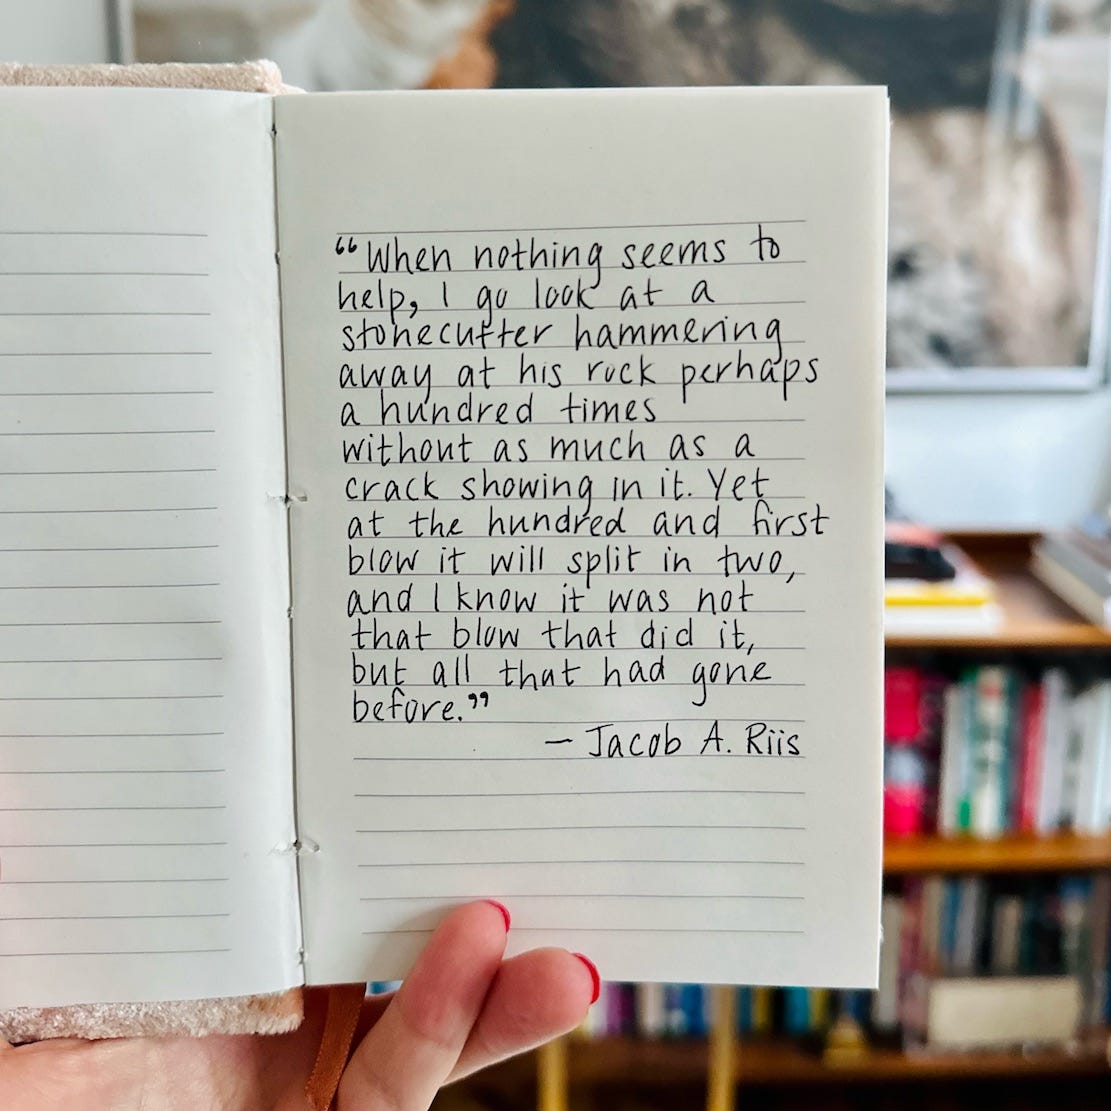 “When nothing seems to
help, I go look at a
stonecutter hammering
away at his rock perhaps
a hundred times
without as much as a
crack showing in it. Yet
at the hundred and first
blow it will split in two,
and I know it was not
that blow that did it,
but all that had gone
before.”
— Jacob A. Riis